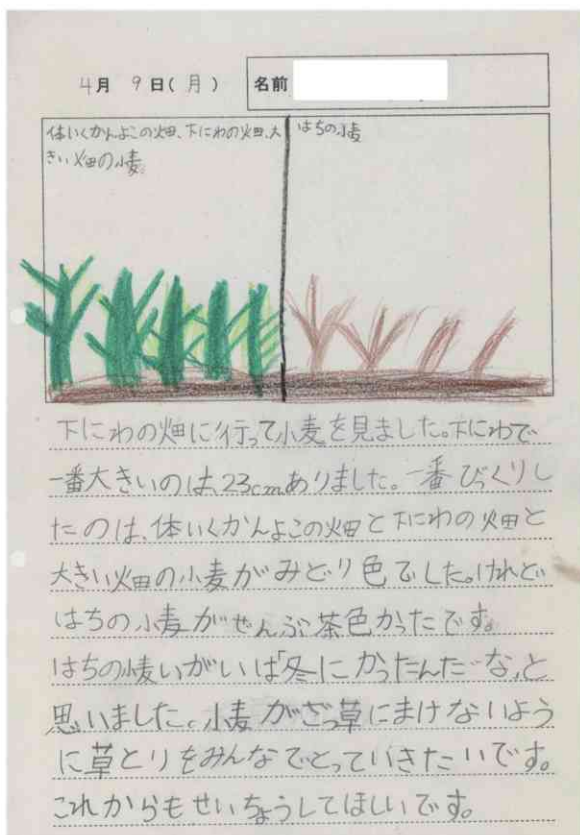 4月 9日(月) 名前
体いくかんよこの畑、下にわの畑、大
きい畑の小麦。
はちの小麦
下にわの畑に行って小麦を見ました。下にわで
一番大きいのは、23cmありました。一番びっくりし
たのは、体いくかんよこの畑と下にわの畑と
大きい畑の小麦がみどり色でした。けれど
はちの小麦がぜんぶ茶色かったです。
はちの小麦いがいは「冬にかったんだな」と
思いました。小麦がざっ草にまけないよう
に草とりをみんなでとっていきたいです。
これからもせいちょうしてほしいです。